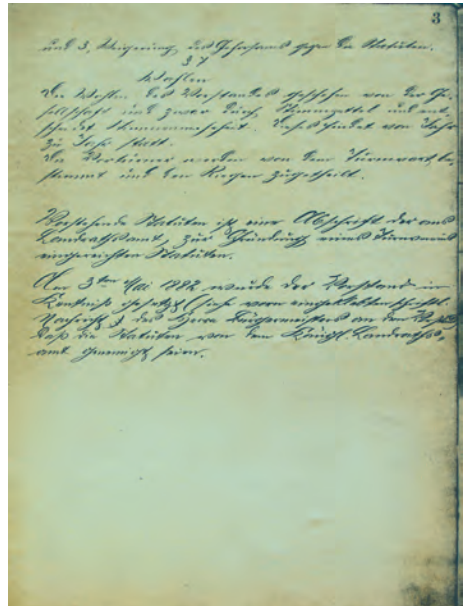 3
und 3, Weigerung des Gehorsams gegen die Statuten.
§ 7
Wahlen
Die Wahlen des Vorstandes geschehen von der Ge-
sellschaft und zwar durch Stimmzettel und ent-
scheidet Stimmenmehrheit. Dieses findet von Jahr
zu Jahr statt.
Die Vorturner werden von dem Turnwart be-
stimmt und den Riegen zugetheilt.
Vorstehende Statuten ist eine Abschrift der ans
Landrathsamt, zur Gründung eines Turnvereins
eingereichten Statuten.
Am 3ten Mai 1882 wurde der Vorstand in
Kentniß gesetzt (siehe vorn
des Herrn Bürgermeisters an den
daß die Statuten von dem Königl. Landraths-
amt genemigt seien.